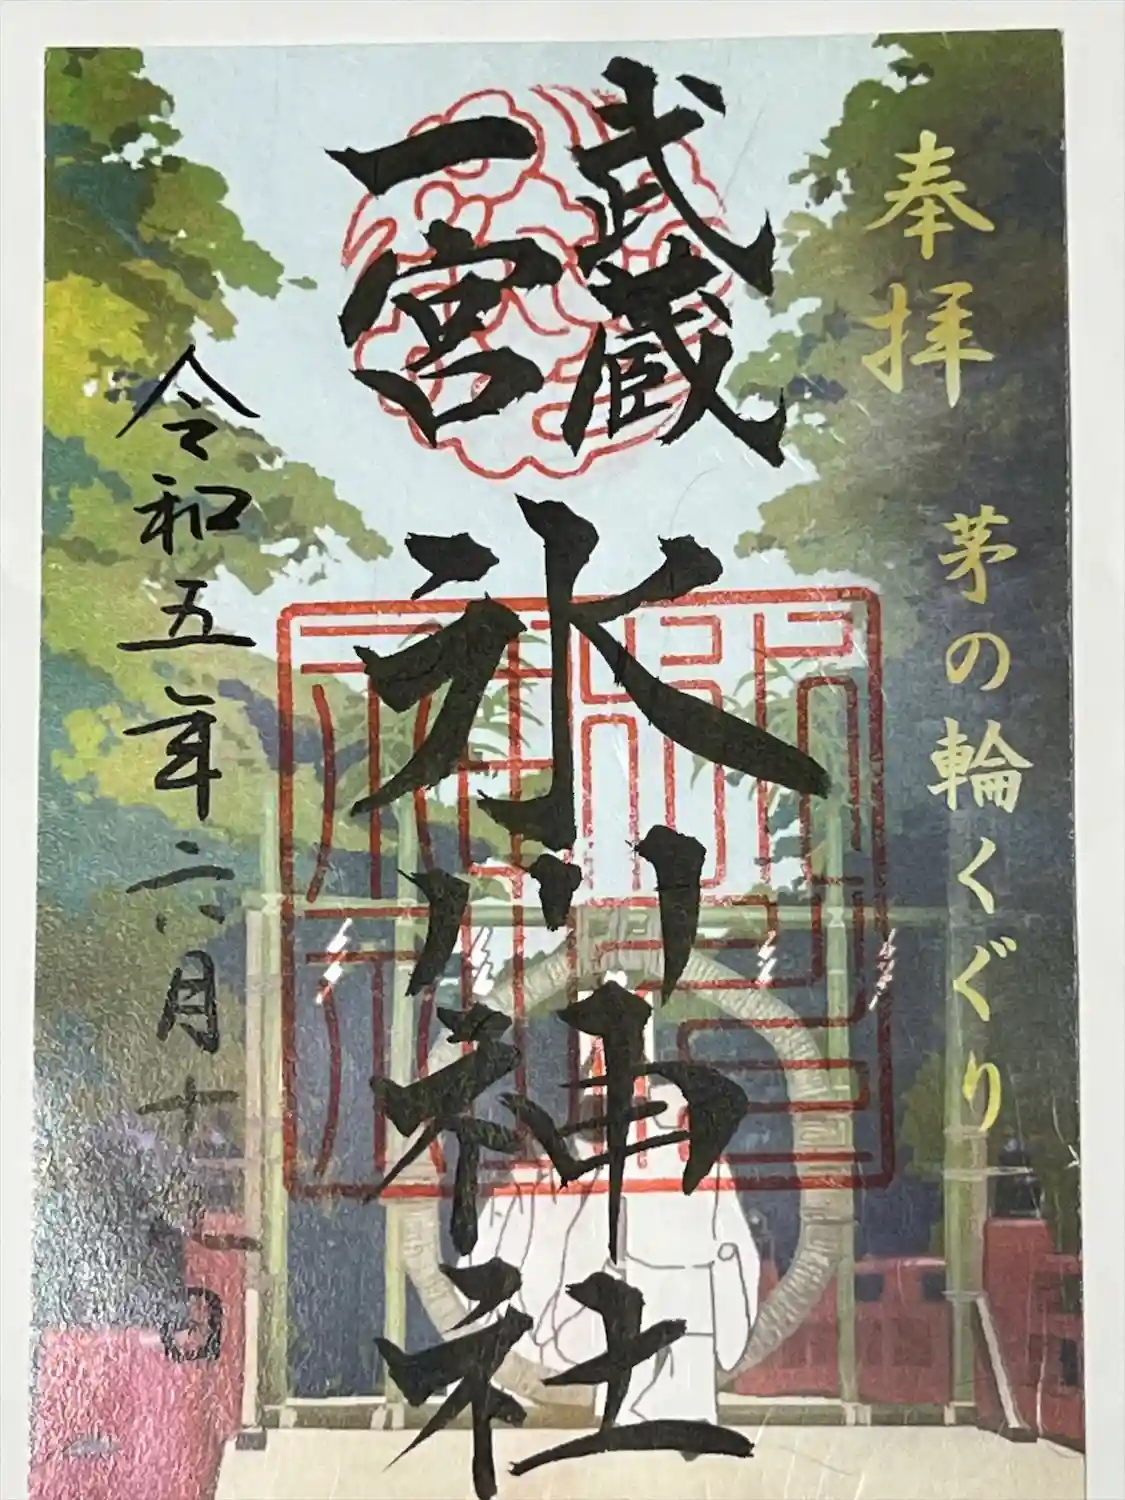 奉拝
茅の輪くぐり
武蔵
一宮
氷川神社
令和五年六月十七日